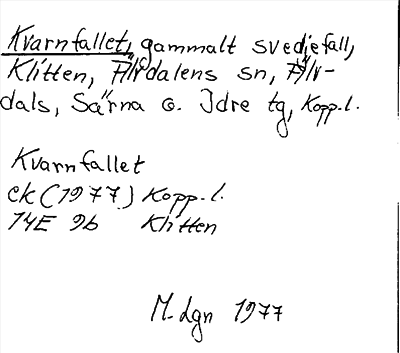 Kvarnfallet, gammalt svedjefall,
Klitten, Älvdalens sn, Älv-
dals, Särna o. Idre tg, Kopp. l.
Kvarnfallet
ek (1977) Kopp. l.
14E 9b Klitten
M. dgn 1977